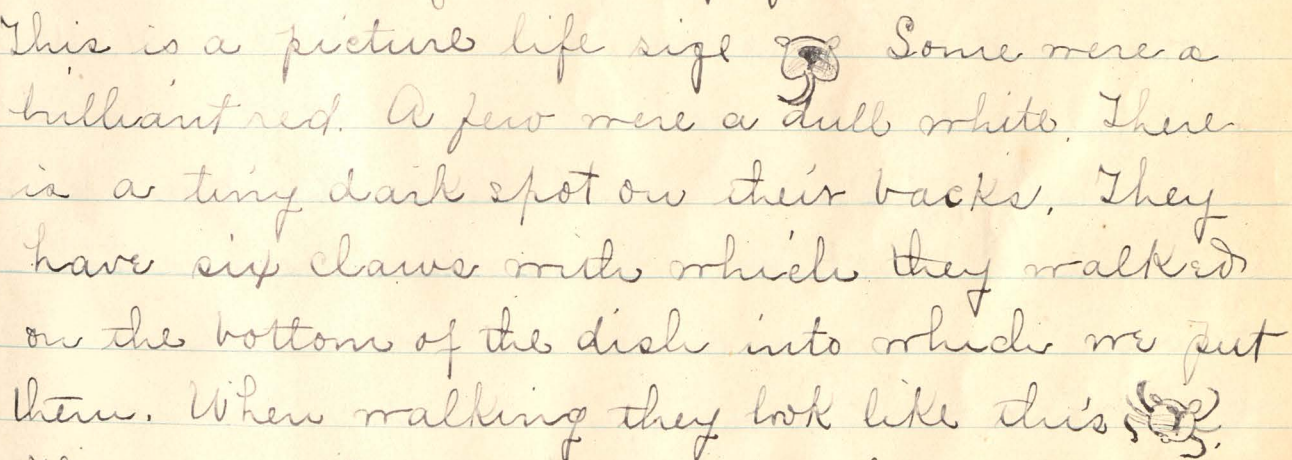 This is a picture life size Some were a
brilliant red. A few were a dull white. There
is a tiny dark spot on their backs. They
have six claws with which they walked
on the bottom of the dish into which we put
them. When walking they look like this